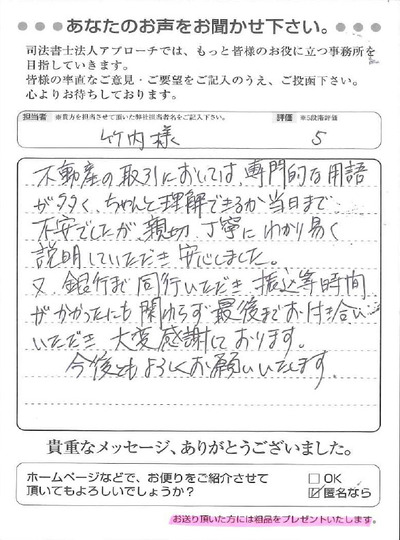 ●●●あなたのお声をお聞かせ下さい。●●●
司法書士法人アプローチでは、もっと皆様のお役に立つ事務所を
目指していきます。
皆様の率直なご意見・ご要望をご記入のうえ、ご投函下さい。
心よりお待ちしております。
担当者 ※貴方を担当させて頂いた弊社担当者名をご記入下さい。 評価 ※5段階評価
竹内様 5
不動産の取引においては、専門的な用語
が多く、ちゃんと理解できるか当日まで
不安でしたが、親切、丁寧にわかり易く
説明していただき安心しました。
又、銀行まで同行いただき、振込等時間
がかかったにも関わらず最後までお付き合い
いただき、大変感謝しております。
今後ともよろしくお願いいたします。
貴重なメッセージ、ありがとうございました。
ホームページなどで、お便りをご紹介させて
頂いてもよろしいでしょうか?
□OK
☑匿名なら
お送り頂いた方には粗品をプレゼントいたします。